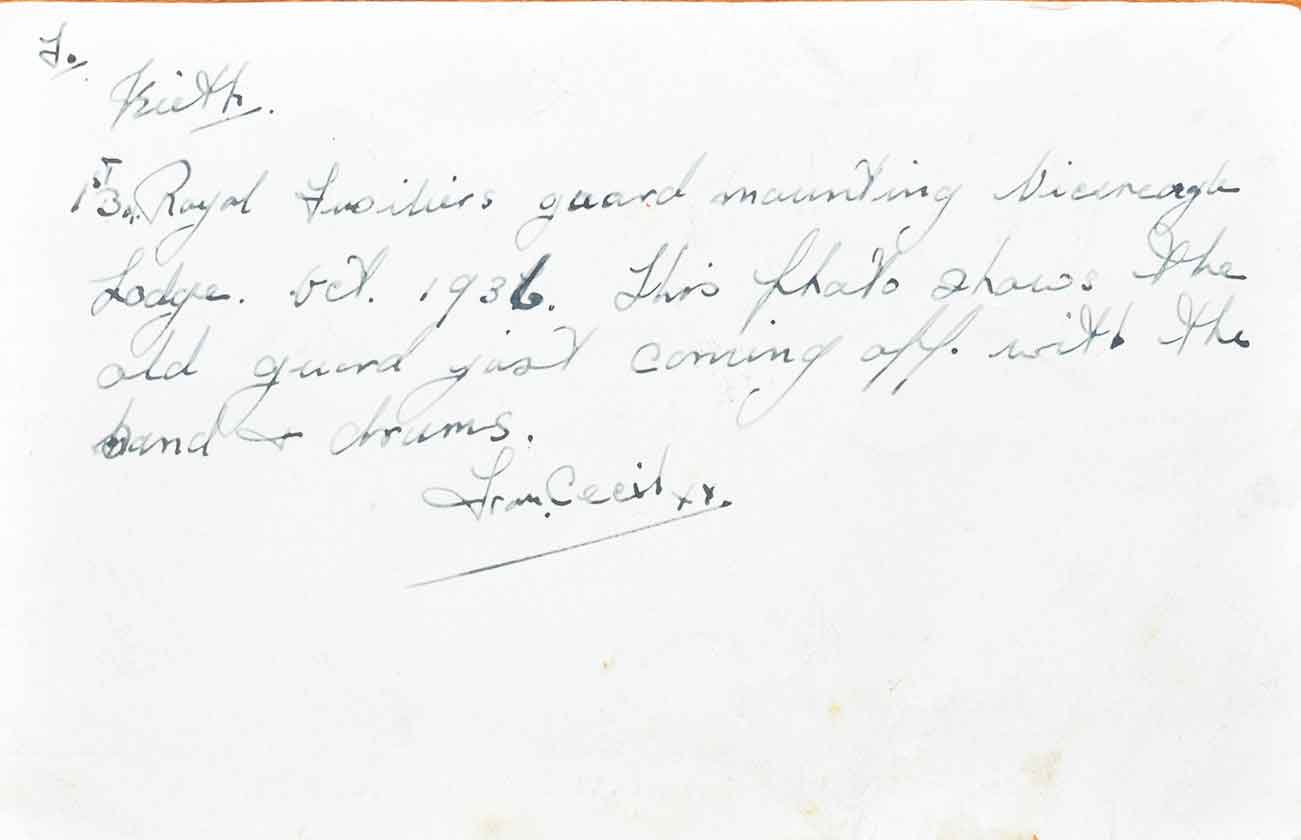 To.
Keith.
1st Bn. Royal Fusiliers guard mounting Vicereagle
Lodge. Oct. 1936. This photo shows the
old guard just coming off. with the
band + drums.
From. Cecil xx.